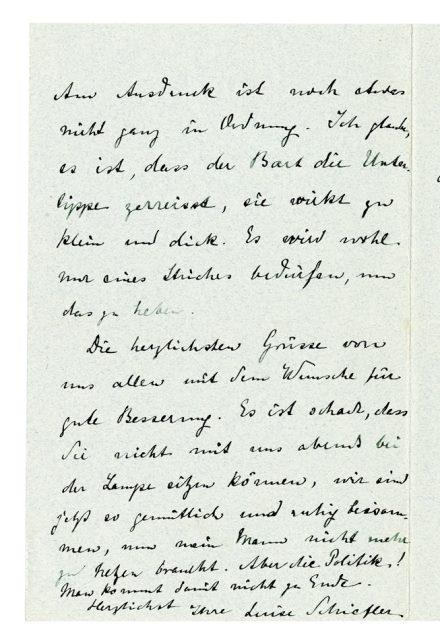 Am Ausdruck ist noch etwas
nicht ganz in Ordnung. Ich glaube,
es ist, dass der Bart die Unter-
lippe zerreisst, sie wirkt zu
klein und dick. Es wird wohl
nur eines Striches bedürfen, um
das zu heben.
Die herzlichsten Grüsse von
uns allen mit dem Wunsche für
gute Besserung. Es ist schade, dass
Sie nicht mit uns abends bei
der Lampe sitzen können, wir sind
jetzt so gemütlich und ruhig beisam-
men, nun mein Mann nicht mehr
zu hetzen braucht. Aber die Politik!
Man kommt damit nicht zu Ende.
Herzlichst Ihre Luise Schiefler.